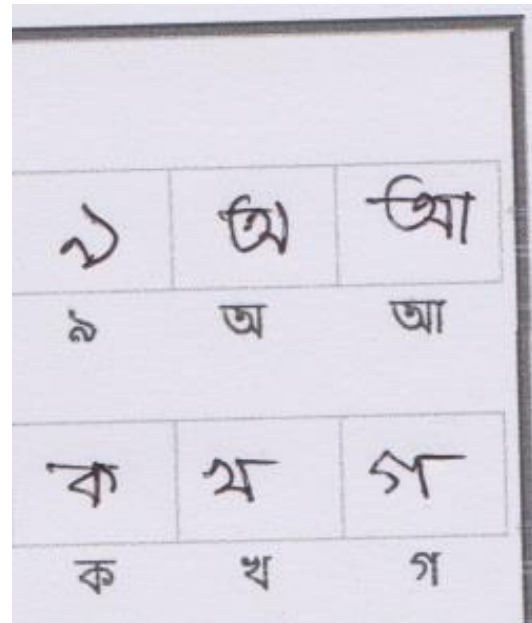 ৯ অ আ
৯ অ আ
ক খ গ
ক খ গ